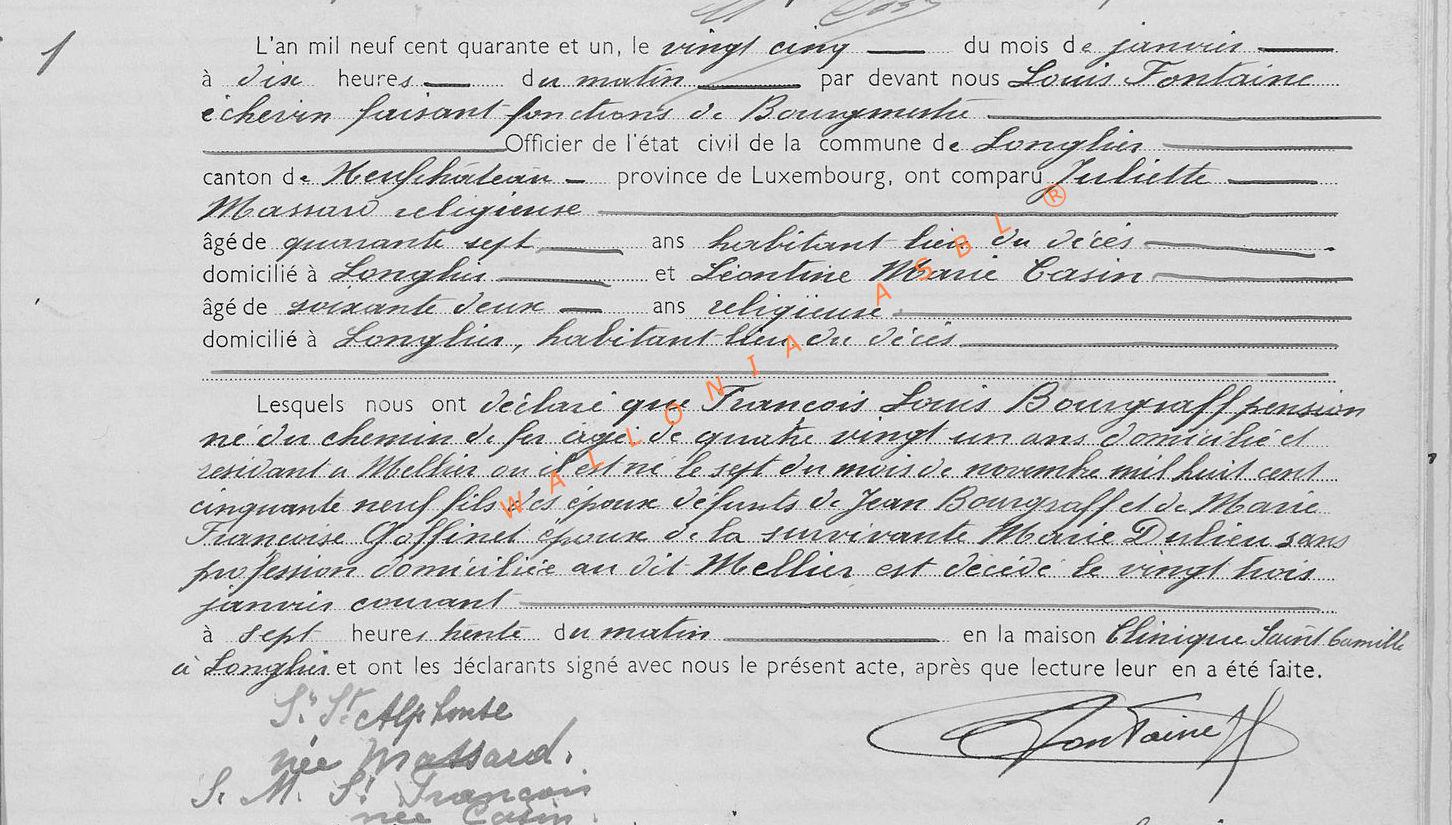 1
L'an mil neuf cent quarante et un, le vingt cinq du mois de janvier
à dix heures du matin par devant nous Louis Fontaine
échevin faisant fonctions de Bourgmestre
Officier de l'état civil de la commune de Longlier
canton de Neufchâteau province de Luxembourg, ont comparu Juliette
Massard religieuse
âgé de quarante sept ans habitant lieu du décès
domicilié à Longlier et Léontine Marie Casin
âgé de soixante deux ans religieuse
domicilié à Longlier, habitant lieu du décès
Lesquels nous ont déclaré que François Louis Bourgraff pension
né du chemin de fer âgé de quatre vingt un ans domicilié et
résidant à Mellier où il est né le sept du mois de novembre mil huit cent
cinquante neuf fils des époux défunts de Jean Bourgraff et de Marie
Françoise Goffinet époux de la survivante Marie Dulieu sans
profession domiciliée au dit Mellier est décédé le vingt trois
janvier courant
à sept heures trente du matin en la maison Clinique Saint Camille
à Longlier et ont les déclarants signé avec nous le présent acte, après que lecture leur en a été faite.
Sr St Alphonse
née Massard.
Fontaine
S. M. St François
née Casin.
WALLONIA ASBL ®